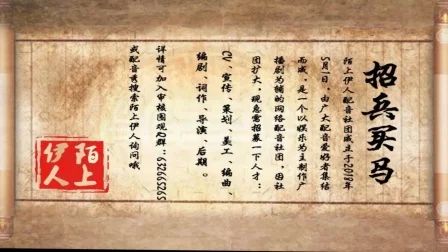 招兵买马
陌上伊人配音社团成立于2019年
5月1日，由广大配音爱好者集结
而成，是一个以娱乐为主制作广
播剧为辅的网络配音社团，因社
团扩大，现急需招募一下人才：
CV、宣传、策划、美工、编曲、
编剧、词作、导演、后期。
详情可加入审核围观入群：625266295
或配音秀搜索陌上伊人询问哦
陌上
伊人